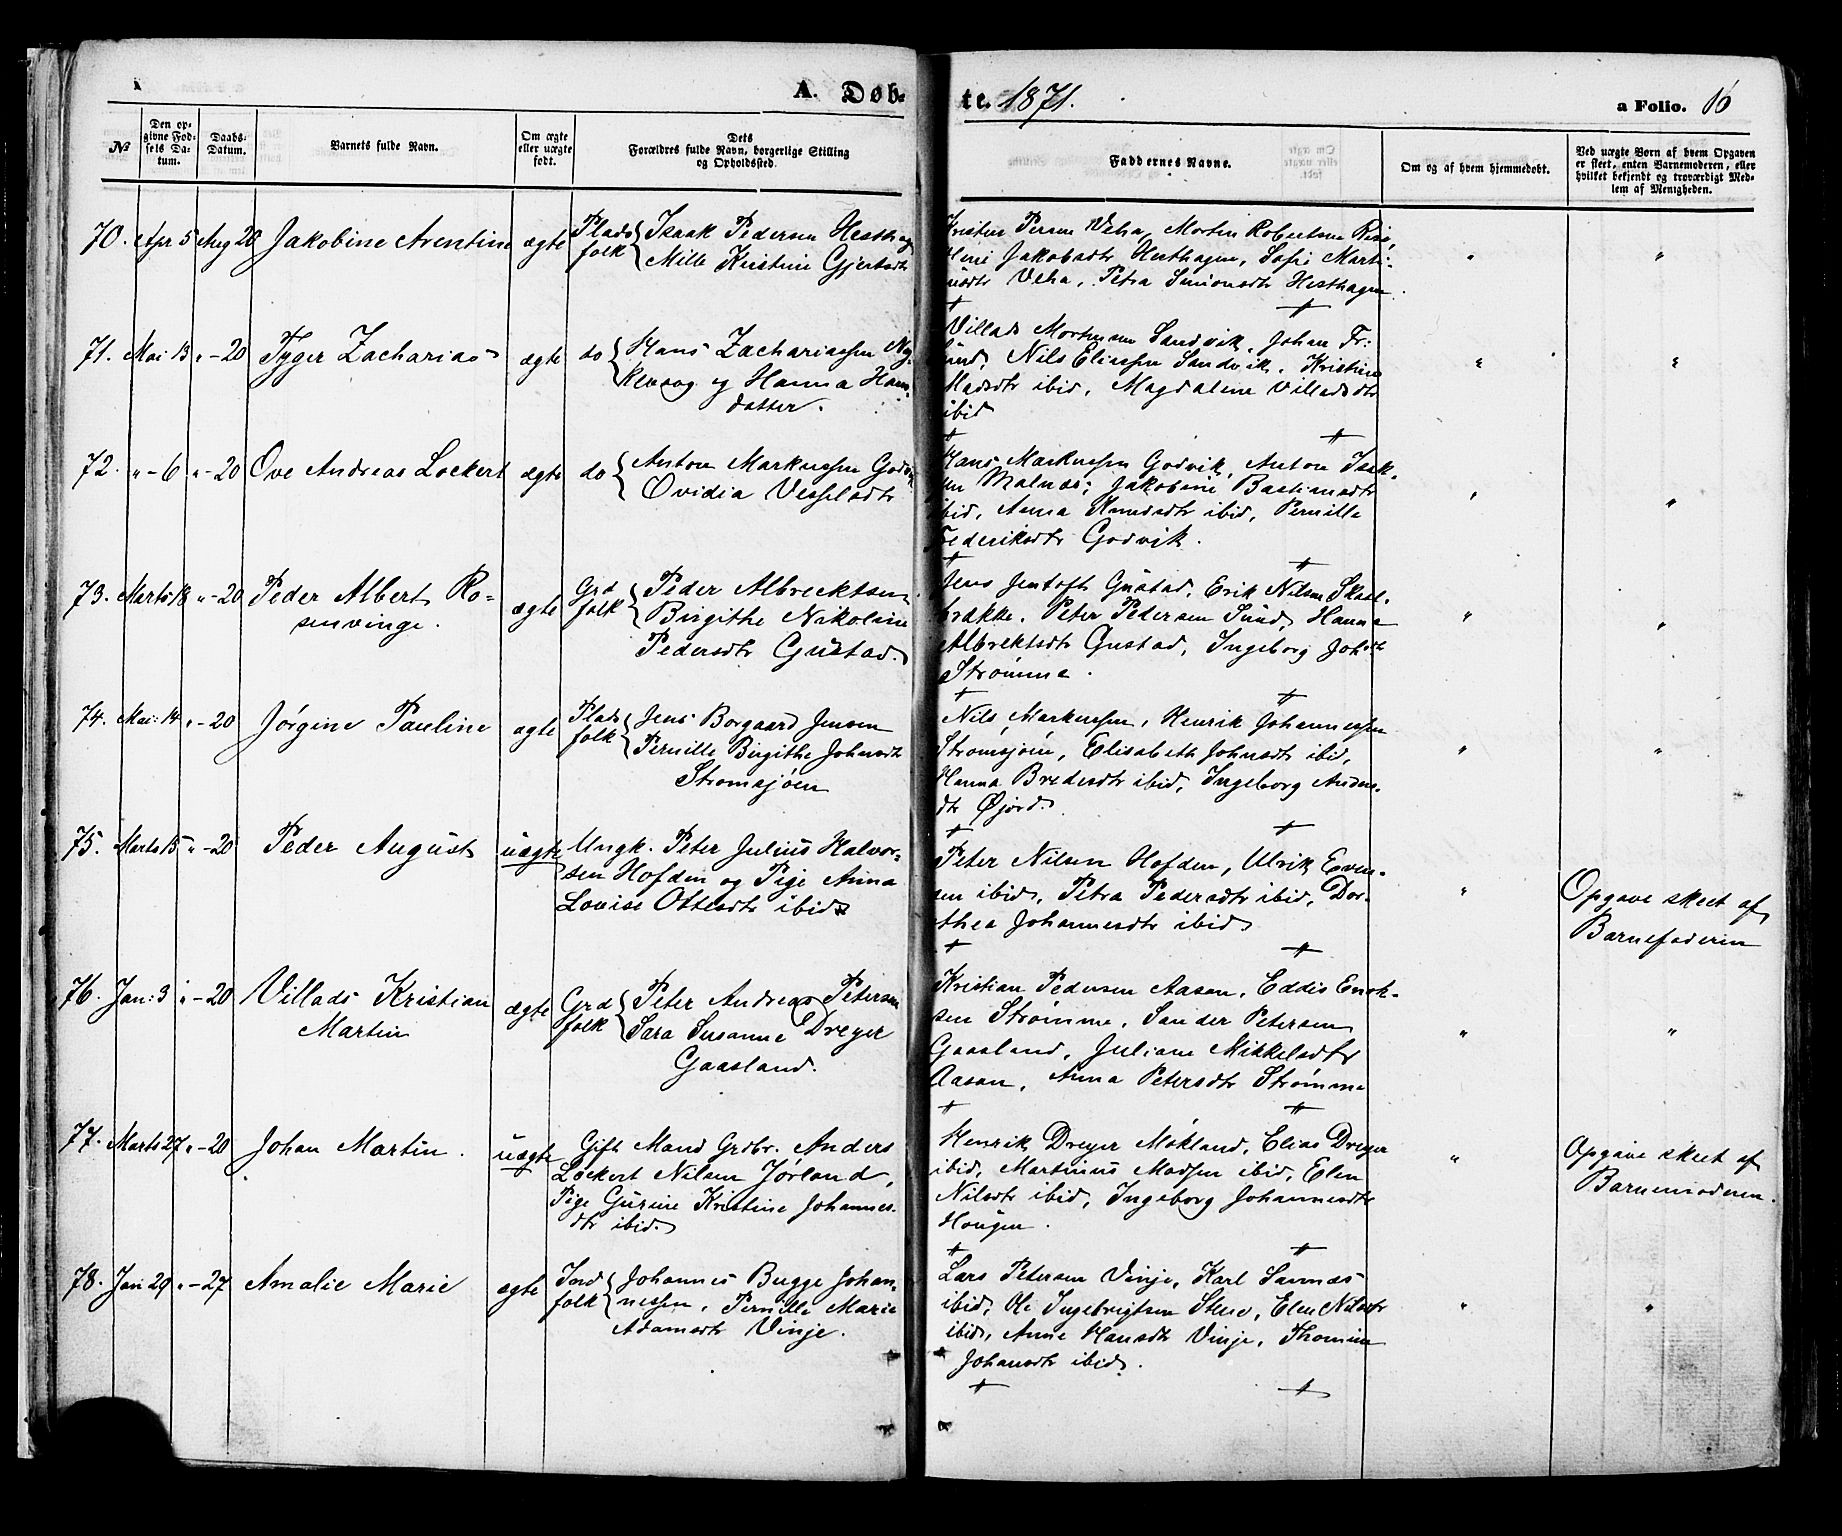 A. Døb-
te. 1871.
a Folio. 16
№
Den op-
givne Fød-
sels Da-
tum.
Daabs-
Datum.
Barnets fulde Navn.
Om ægte
eller uægte
født.
Dets
Forældres fulde Navn, borgerlige Stilling
og Opholdssted.
Faddernes Navne.
Om og af hvem hjemmedøbt.
Ved uægte Børn af hvem Opgaven
er skeet, enten Barnemoderen, eller
hvilket bekjendt og troværdigt Med-
lem af Menigheden.
70. Apr 5 Aug 20 Jakobine Arentine ægte
Plads
folk
Israk Pedersen Hesthag
Mille Kristine Gjertsdtr
Kristen Persen Veha, Martin Robertsen
Jakobsdtr Hesthagen, Sofie Marti-
nsdtr Veha, Petra Simonsdtr Hesthagen
" "
71. Mai 13 " -20 Tyger Zacharias ægte do
Hans Zachariassen Ny-
kevaag og Hanna Hans
datter.
Villads Mortensen Sandvik, Johan Fr:
Nils Eliassen Sandvik, Kristine
Madsdtr ibid, Magdalene Villadsdtr
ibid
" "
72. " -6 " -20 Ove Andreas Lockert ægte do
Anton Markussen Godvik
Ovidia Vesselsdtr
Hans Markussen Godvik, Anton Isak-
sen Malnæs, Jakobine Bastiansdtr
ibid, Anna Knudsdtr ibid, Pernille
Frederiksdtr Godvik.
" "
73. Marts 18 " -20 Peder Albert Ro-
senvinge. ægte
Grd
folk
Peder Albrecktsen
Birgithe Nikoline
Pedersdtr Gustad.
Jens Jentoft Gustad, Erik Nilsen Skaal-
brække, Peter Pedersen Sund, Hanna
Albrektsdtr Gustad, Ingeborg Johsdtr
Strømme.
" "
74. Mai: 14 " -20 Jørgine Pauline ægte
Plads
folk
Jens Borgaard Jensen
Pernille Birgithe Johnsdtr
Strømsjøen
Nils Markussen, Henrik Johannessen
Strømsjøen, Elisabeth Johnsdtr ibid,
Hanna Bredesdtr ibid, Ingeborg Anders-
dtr Øjord.
" "
75. Marts 15 " -20 Peder August uægte
Ungk. Peter Julius Halvor-
sen Hofden og Pige Anna
Lovise Ottesdtr ibid
Peter Nilsen Hofden, Ulrik Even-
sen ibid, Petra Pedersdtr ibid, Dor-
thea Johannesdtr ibid
" Opgave skeet af
Barnefaderen
76. Jan: 3 " -20 Villads Kristian
Martin ægte
Grd
folk
Peter Andreas Petersen
Sara Susanne Dreyer
Gaasland.
Kristian Pedersen Aasen, Eddis Enok-
sen Strømme, Sander Petersen
Gaasland, Juliane Mikkelsdtr
Aasen, Anna Petersdtr Strømme
" "
77. Marts 27 " -20 Johan Martin. uægte
Gift Mand Grdbr. Anders
Lockert Nilsen Jørland,
Pige Gurine Kristine Johannes-
dtr ibid.
Henrik Dreyer Møkland, Elias Dreyer
ibid, Martinus Madsen ibid, Elen
Nilsdtr ibid, Ingeborg Johannesdtr
Hougen.
" Opgave skeet af
Barnemoderen.
78. Jan 29 " -27 Amalie Marie ægte
Ind
folk
Johannes Bugge Johan-
nessen, Pernille Marie
Adamsdtr Vinje.
Lars Petersen Vinje, Karl Sannæs
ibid, Ole Ingebrigtsen Stene, Elen Nilsdtr
ibid, Anne Hansdtr Vinje, Thomine
Johansdtr ibid.
" "